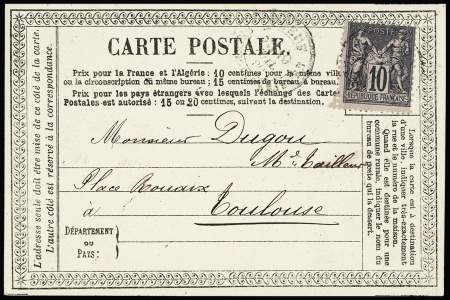 CARTE POSTALE.
Prix pour la France et l'Algérie: 10 centimes pour la même ville
ou la circonscription du même bureau; 15 centimes de bureau à bureau.
Prix pour les pays étrangers avec lesquels l'échange des Cartes
Postales est autorisé: 15 ou 20 centimes, suivant la destination.
10
Monsieur Dugou
Md Tailleur
Place Rouaix
à Toulouse
DÉPARTEMENT
OU
PAYS:
L'adresse seule doit être mise de ce côté de la carte.
L'autre côté est réservé à la correspondance.
Lorsque la carte est à destination
d'une ville, indiquer très-exactement
la rue et le numéro de la maison.
Quand elle est destinée pour une
commune rurale, indiquer le nom du
bureau de poste qui la dessert.